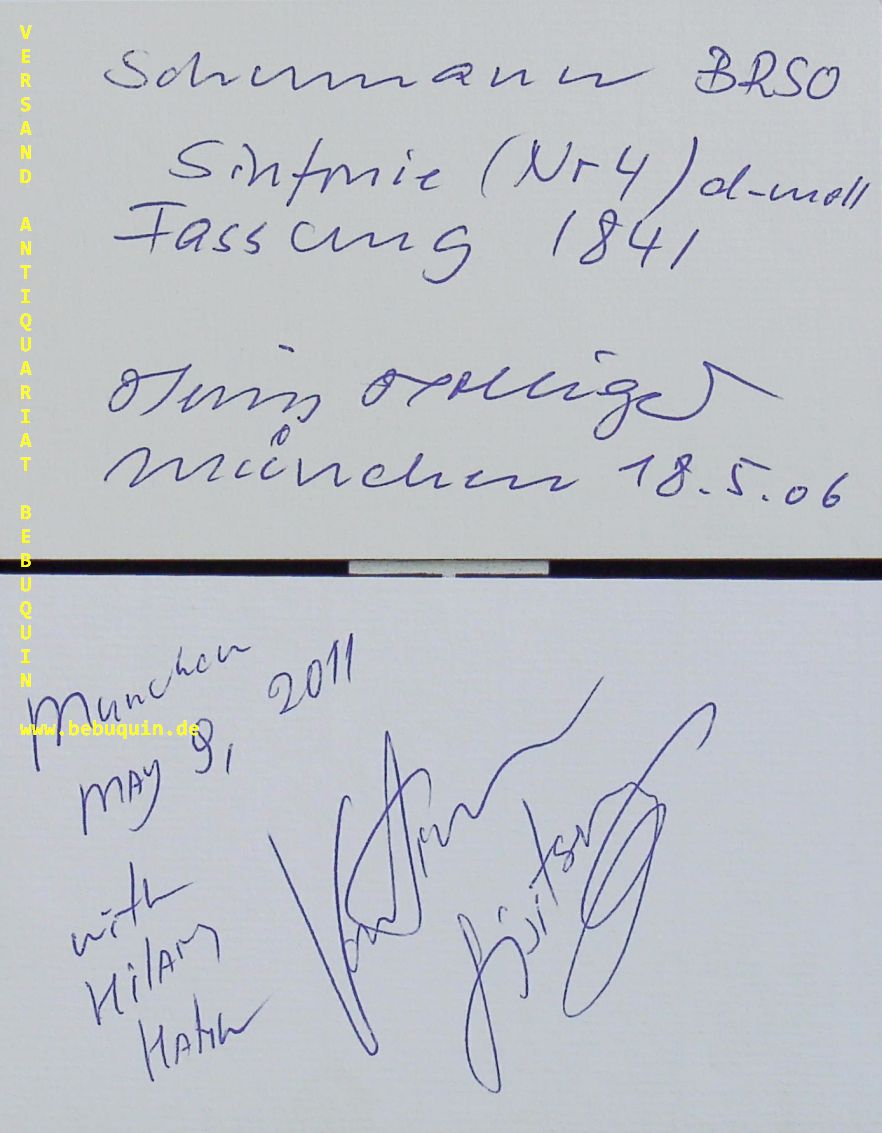 VERSAND ANTIQUARIAT BEBUQUIN
www.bebuquin.de
Schumann BRSO
Sinfonie (Nr 4) d-moll
Fassung 1841
Heinz Holliger
München 18.5.06
München
MAY 9, 2011
with
HilARy
HAhn